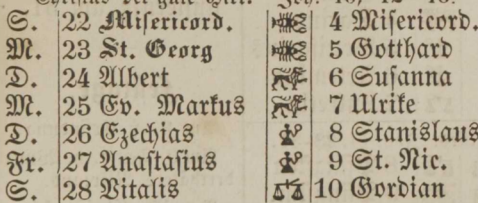 S. 22 Misericord. 4 Misericord.
M. 23 St. Georg 5 Gotthard
D. 24 Albert 6 Susanna
M. 25 Ev. Markus 7 Ulrike
D. 26 Ezechias 8 Stanislaus
Fr. 27 Anastasius 9 St. Nic.
S. 28 Vitalis 10 Gordian